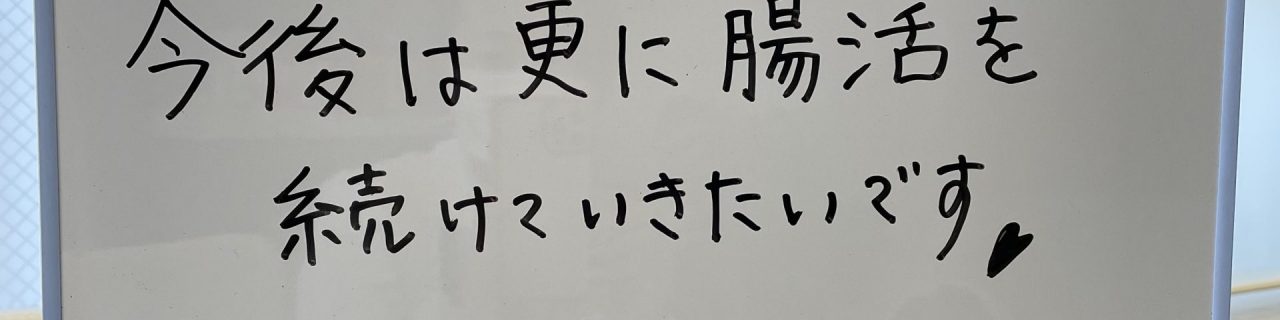 今後は更に腸活を
続けていきたいです♥